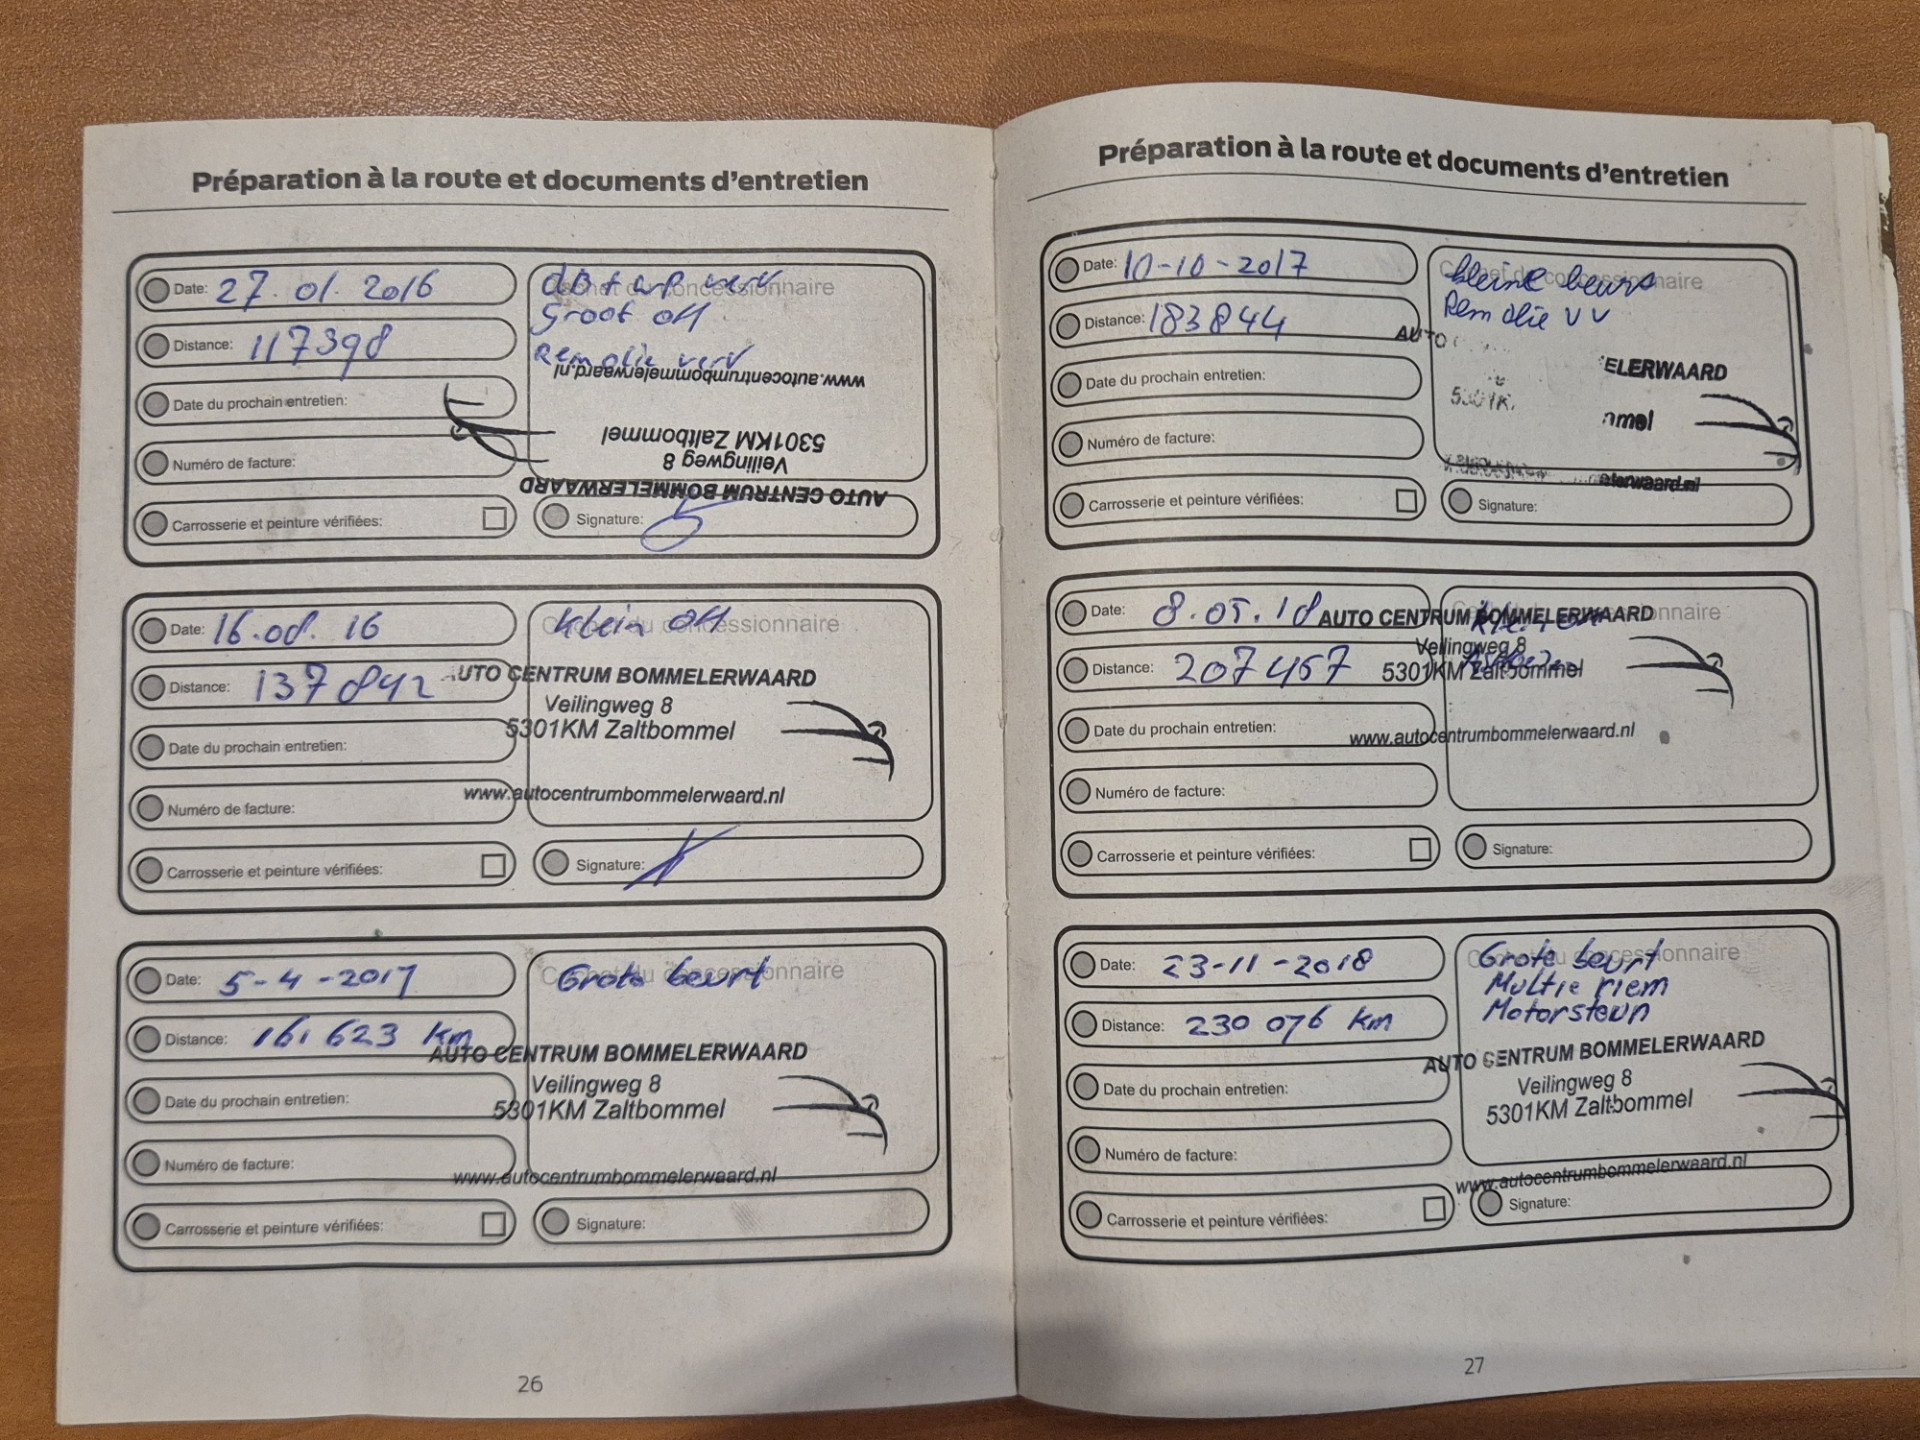 Préparation à la route et documents d'entretien
Date: 27.01.2016
Distance: 117398
Date du prochain entretien:
Numéro de facture:
Carrosserie et peinture vérifiées:
Cachet du concessionnaire
verv
Groot OH
Remolie verv
www.autocentrumbommelerwaard.nl
5301KM Zaltbommel
Veilingweg 8
AUTO CENTRUM BOMMELERWAARD
Signature:
Date: 16.08.16
Distance: 137842
Date du prochain entretien:
Numéro de facture:
Carrosserie et peinture vérifiées:
Cachet du concessionnaire
Klein OH
AUTO CENTRUM BOMMELERWAARD
Veilingweg 8
5301KM Zaltbommel
www.autocentrumbommelerwaard.nl
Signature:
Date: 5-4-2017
Distance: 161623 km
Date du prochain entretien:
Numéro de facture:
Carrosserie et peinture vérifiées:
Cachet du concessionnaire
Grote beurt
AUTO CENTRUM BOMMELERWAARD
Veilingweg 8
5301KM Zaltbommel
www.autocentrumbommelerwaard.nl
Signature:
26
Préparation à la route et documents d'entretien
Date: 10-10-2017
Distance: 183844
Date du prochain entretien:
Numéro de facture:
Carrosserie et peinture vérifiées:
Cachet du concessionnaire
kleine beurt
Rem olie vv
AUTO ELERWAARD
5301K mmel
elerwaard.nl
Signature:
Date: 8.05.18
Distance: 207457
Date du prochain entretien:
Numéro de facture:
Carrosserie et peinture vérifiées:
concessionnaire
AUTO CENTRUM BOMMELERWAARD
Veilingweg 8
5301KM Zaltbommel
www.autocentrumbommelerwaard.nl
Signature:
Date: 23-11-2018
Distance: 230 076 km
Date du prochain entretien:
Numéro de facture:
Carrosserie et peinture vérifiées:
Cachet du concessionnaire
Grote beurt
Multie riem
Motorsteun
AUTO CENTRUM BOMMELERWAARD
Veilingweg 8
5301KM Zaltbommel
www.autocentrumbommelerwaard.nl
Signature:
27